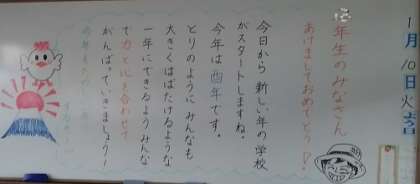 1月10日火
年生のみなさん
あけましておめでとう
今日から新しい年の学校
がスタートしますね。
今年は酉年です。
とりのようにみんなも
大きくはばたけるような
一年にできるようみんな
で力と心を合わせて
がんばっていきましょう!